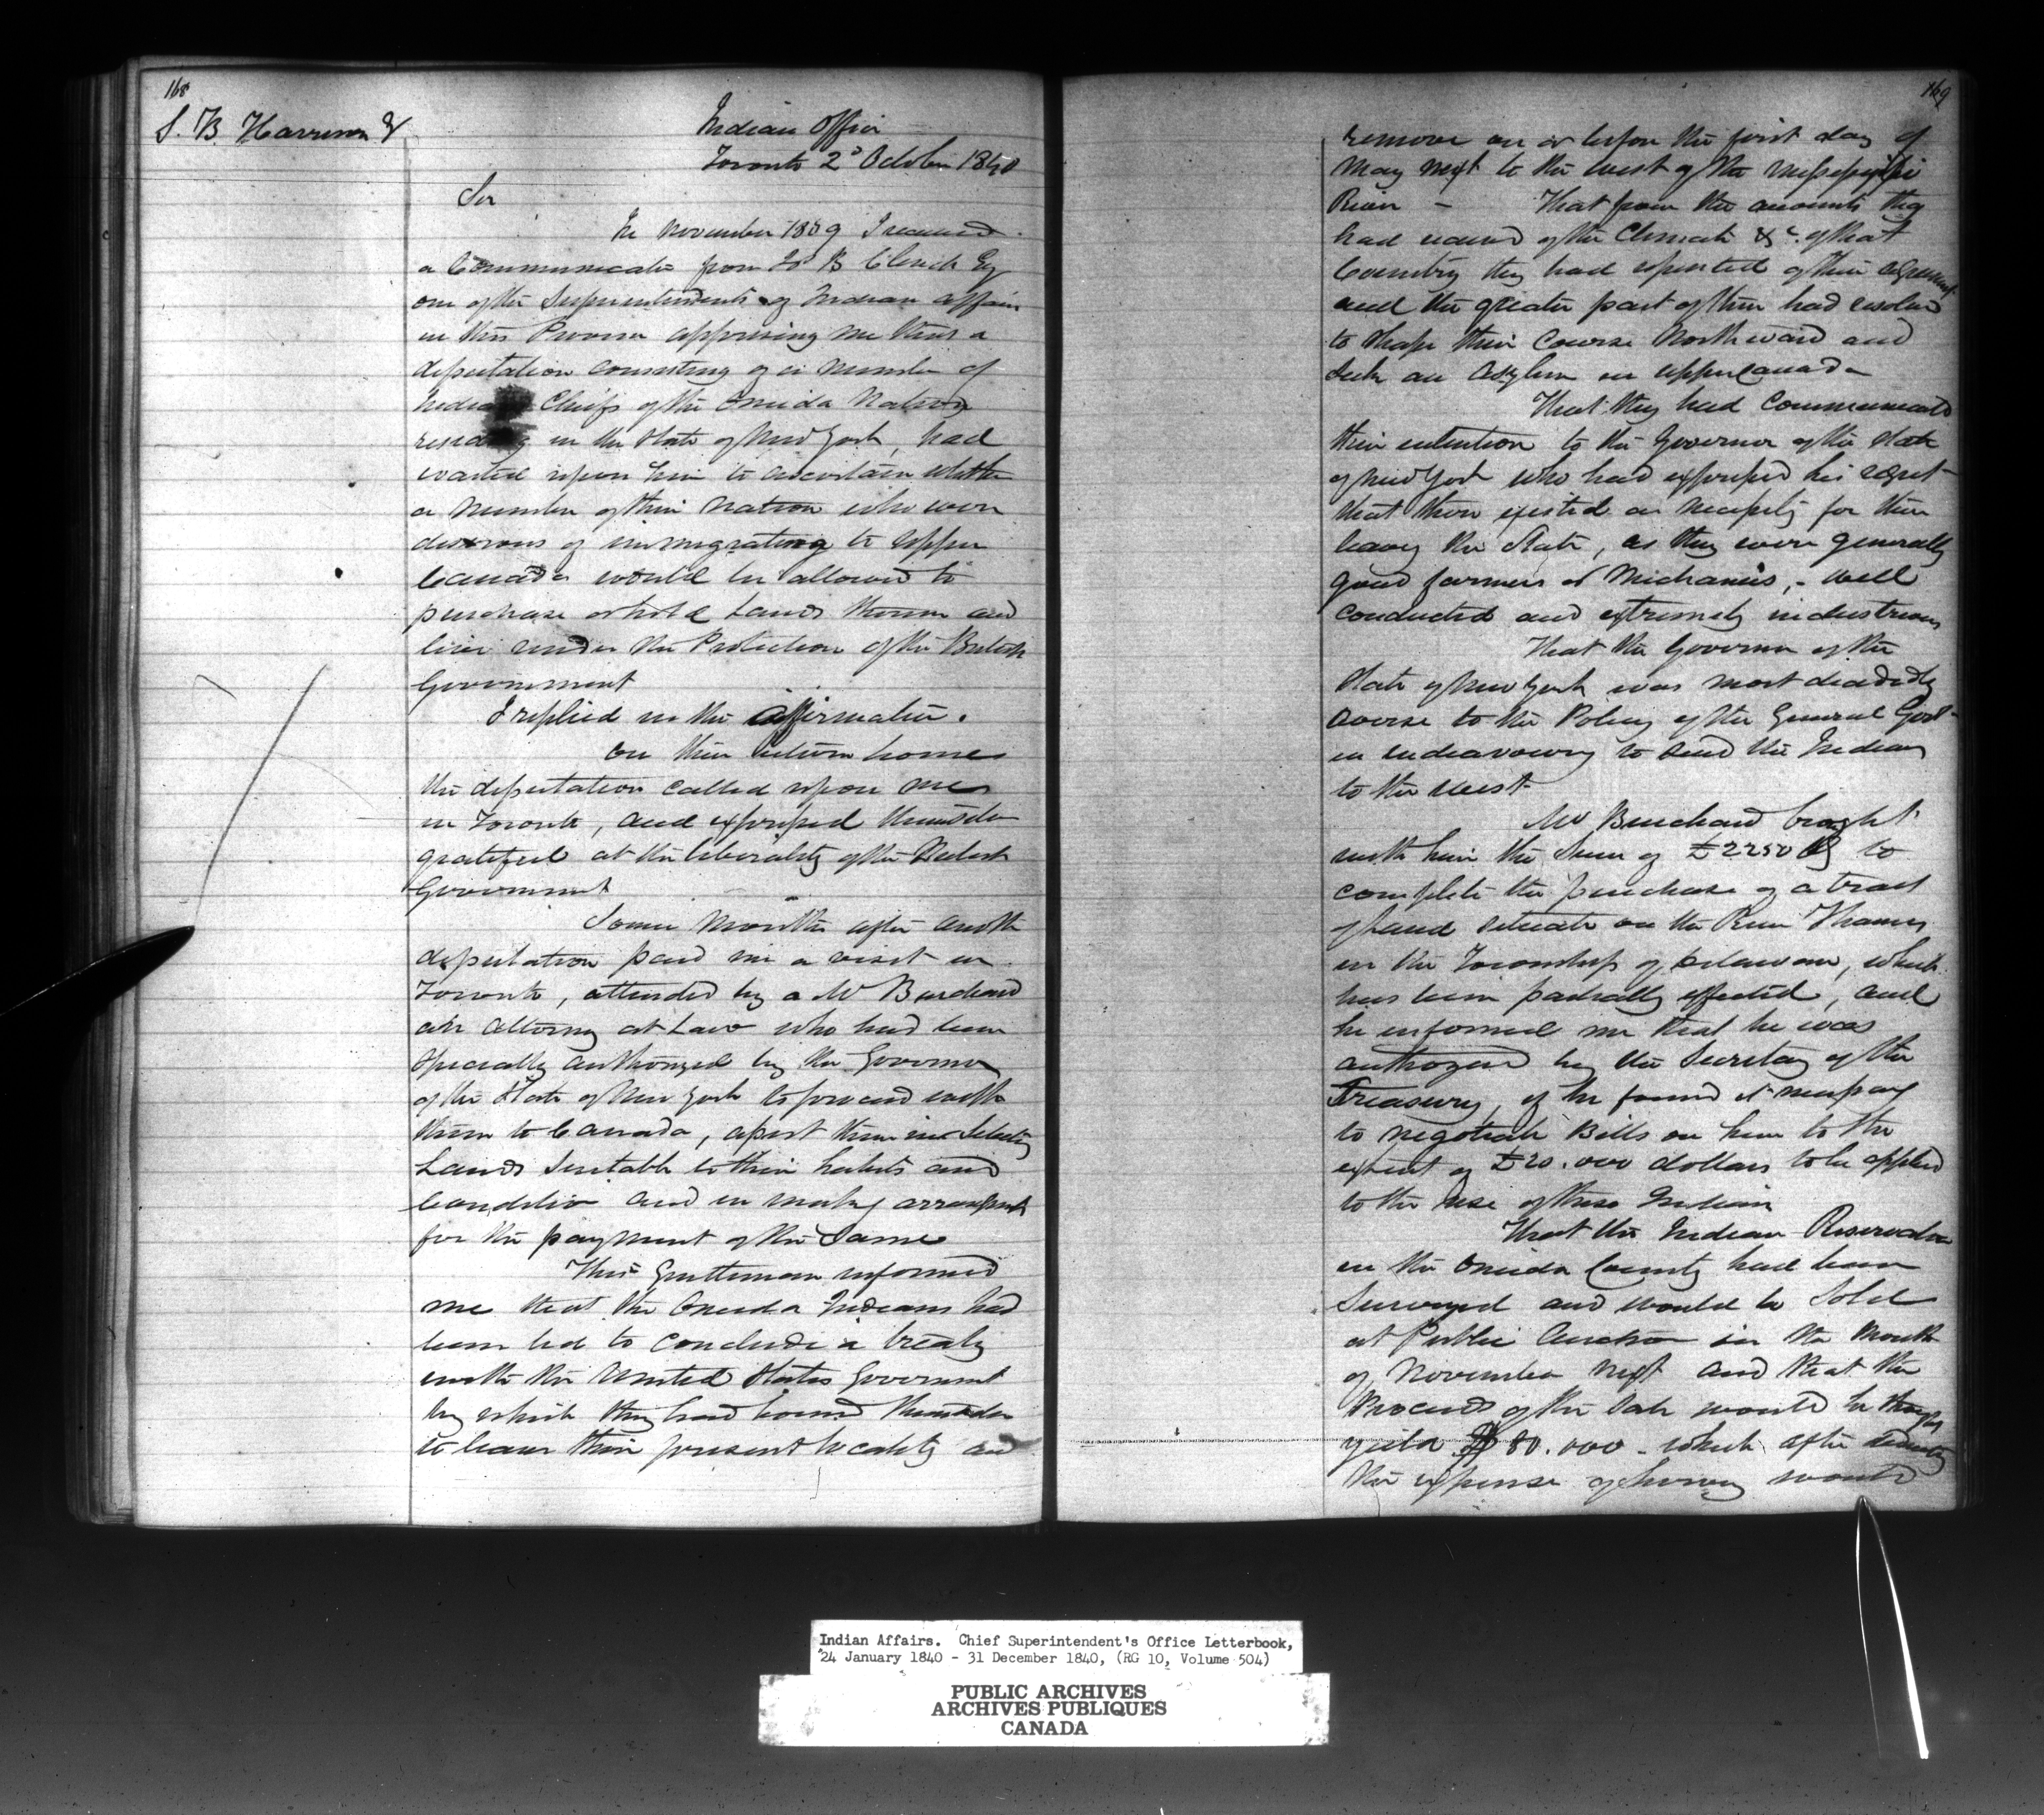 168
S. B. Harrison
Indian Office
Toronto 2d October 1840
Sir
In November 1839 I received
a Communicatn from Jos B Clench Esq
one of the Superintendents of Indian Affairs
in this Province apprising me that a
deputation consisting of a number of
Indian Chiefs of the Oneida Nation
residing in the State of New York, had
waited upon him to ascertain whether
a number of their Nation who were
desirous of immigrating to Upper
Canada would be allowed to
purchase or hold Lands therein and
live under the Protection of the British
Government
I replied in the affirmative.
On their return home
the deputation called upon me
in Toronto, and expressed themselves
grateful at the liberality of the British
Government
Some months after another
deputation paid me a visit in
Toronto, attended by a Mr Burchard
an Attorney at Law who had been
specially authorized by the Governor
of the State of New York to proceed with
them to Canada, assist them in selecting
Lands suitable to their habits and
Condition and in making arrangements
for the payment of the same
This Gentleman informed
me that the Oneida Indians had
been led to conclude a treaty
with the United States Government
by which they had bound themselves
to leave their present locality and
169
remove on or before the first day of
May next to the west of the Mississippi
River - That from the accounts they
had received of the Climate &c. of that
Country they had repented of their agreement
and the greater part of them had resolved
to shape their Course Northward and
seek an Asylum in Upper Canada
That they had Communicated
their intention to the Governor of the State
of New York who had expressed his regret
that there existed a necessity for their
leaving the State, as they were generally
good farmers or Mechanics, - well
conducted and extremely industrious
That the Governor of the
State of New York was most decidedly
averse to the Policy of the General Govt
in endeavouring to send the Indians
to the West
Mr Burchard brought
with him the Sum of £2250 to
complete the purchase of a tract
of Land situate on the River Thames
in the Township of Delaware, which
has been partially effected, and
he informed me that he was
authorized by the Secretary of the
Treasury, if he found it necessary
to negotiate Bills on him to the
extent of £20.000 dollars to be applied
to the use of these Indians
That the Indian Reservation
in the Oneida County had been
Surveyed and would be Sold
at Public Auction in the Month
of November next and that the
Proceeds of the Sale would he thought
yield $80.000 - which after deducting
the expense of Survey would
Indian Affairs. Chief Superintendent's Office Letterbook,
24 January 1840 - 31 December 1840, (RG 10, Volume 504)
PUBLIC ARCHIVES
ARCHIVES PUBLIQUES
CANADA